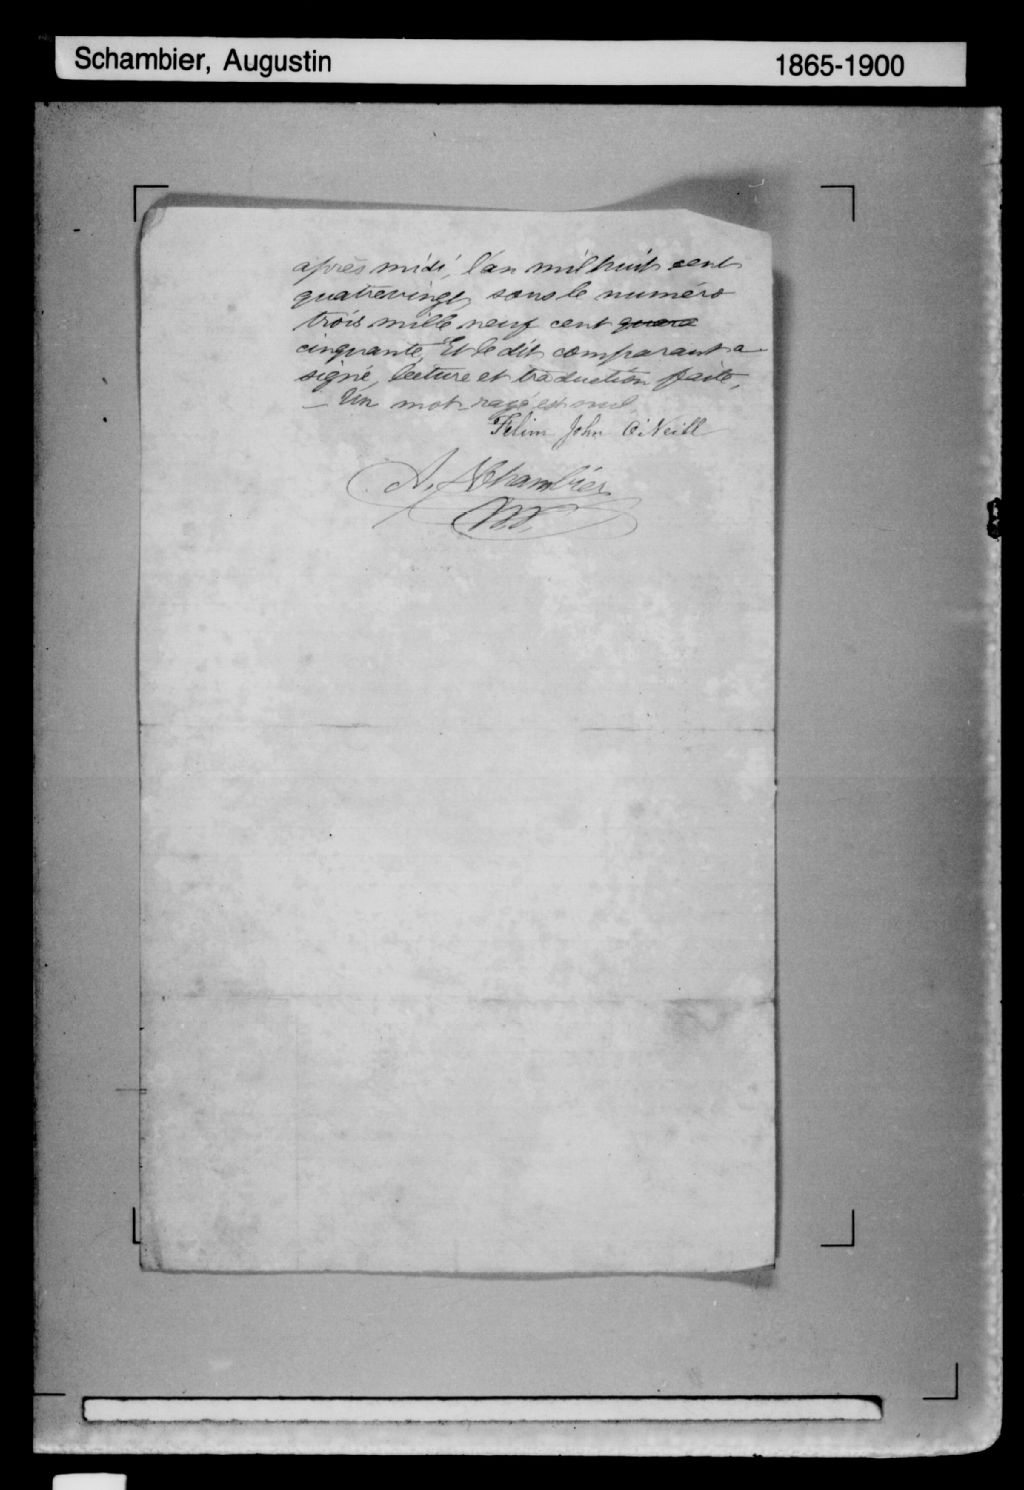 Schambier, Augustin 1865-1900
après midi, l'an mil huit cent
quatrevingt, sous le numéro
trois mille neuf cent quara
cinquante, Et le dit comparant a
signé, lecture et traduction faite,
– Un mot rayé est nul,
Felim John O'Neill
A. Schambier
N.P.